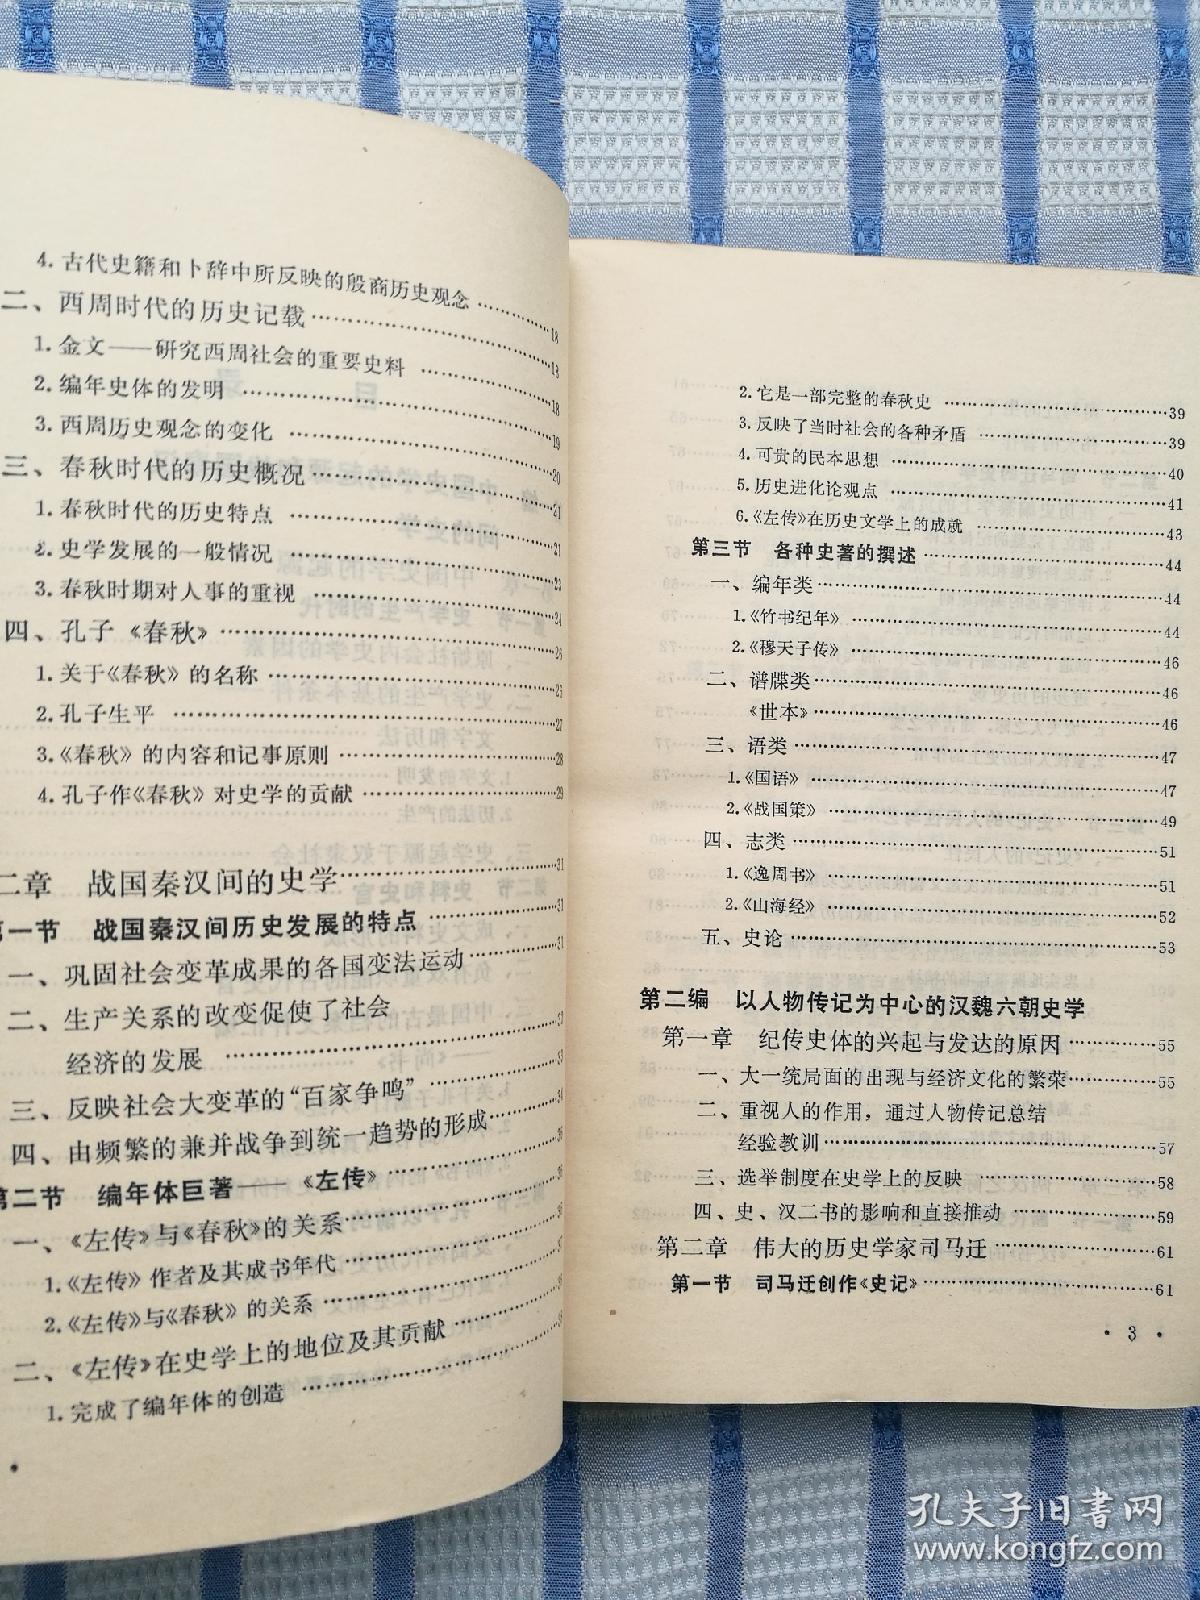 4.古代史籍和卜辞中所反映的殷商历史观念……………18
二、西周时代的历史记载……………18
1.金文——研究西周社会的重要史料……………18
2.编年史体的发明……………19
3.西周历史观念的变化……………20
三、春秋时代的历史概况……………21
1.春秋时代的历史特点……………21
2.史学发展的一般情况……………23
3.春秋时期对人事的重视……………24
四、孔子《春秋》……………25
1.关于《春秋》的名称……………25
2.孔子生平……………27
3.《春秋》的内容和记事原则……………28
4.孔子作《春秋》对史学的贡献……………29
二章 战国秦汉间的史学……………31
第一节 战国秦汉间历史发展的特点……………31
一、巩固社会变革成果的各国变法运动……………31
二、生产关系的改变促使了社会
经济的发展……………33
三、反映社会大变革的“百家争鸣”……………34
四、由频繁的兼并战争到统一趋势的形成……………
第二节 编年体巨著——《左传》……………
一、《左传》与《春秋》的关系……………
1.《左传》作者及其成书年代……………
2.《左传》与《春秋》的关系……………
二、《左传》在史学上的地位及其贡献……………
1.完成了编年体的创造……………
2.它是一部完整的春秋史……………39
3.反映了当时社会的各种矛盾……………39
4.可贵的民本思想……………40
5.历史进化论观点……………41
6.《左传》在历史文学上的成就……………43
第三节 各种史著的撰述……………44
一、编年类……………44
1.《竹书纪年》……………44
2.《穆天子传》……………46
二、谱牒类……………46
《世本》……………46
三、语类……………47
1.《国语》……………47
2.《战国策》……………49
四、志类……………51
1.《逸周书》……………51
2.《山海经》……………52
五、史论……………53
第二编 以人物传记为中心的汉魏六朝史学
第一章 纪传史体的兴起与发达的原因……………55
一、大一统局面的出现与经济文化的繁荣……………55
二、重视人的作用，通过人物传记总结
经验教训……………57
三、选举制度在史学上的反映……………58
四、史、汉二书的影响和直接推动……………59
第二章 伟大的历史学家司马迁……………61
第一节 司马迁创作《史记》……………61
• 3 •
孔夫子旧书网
www.kongfz.com